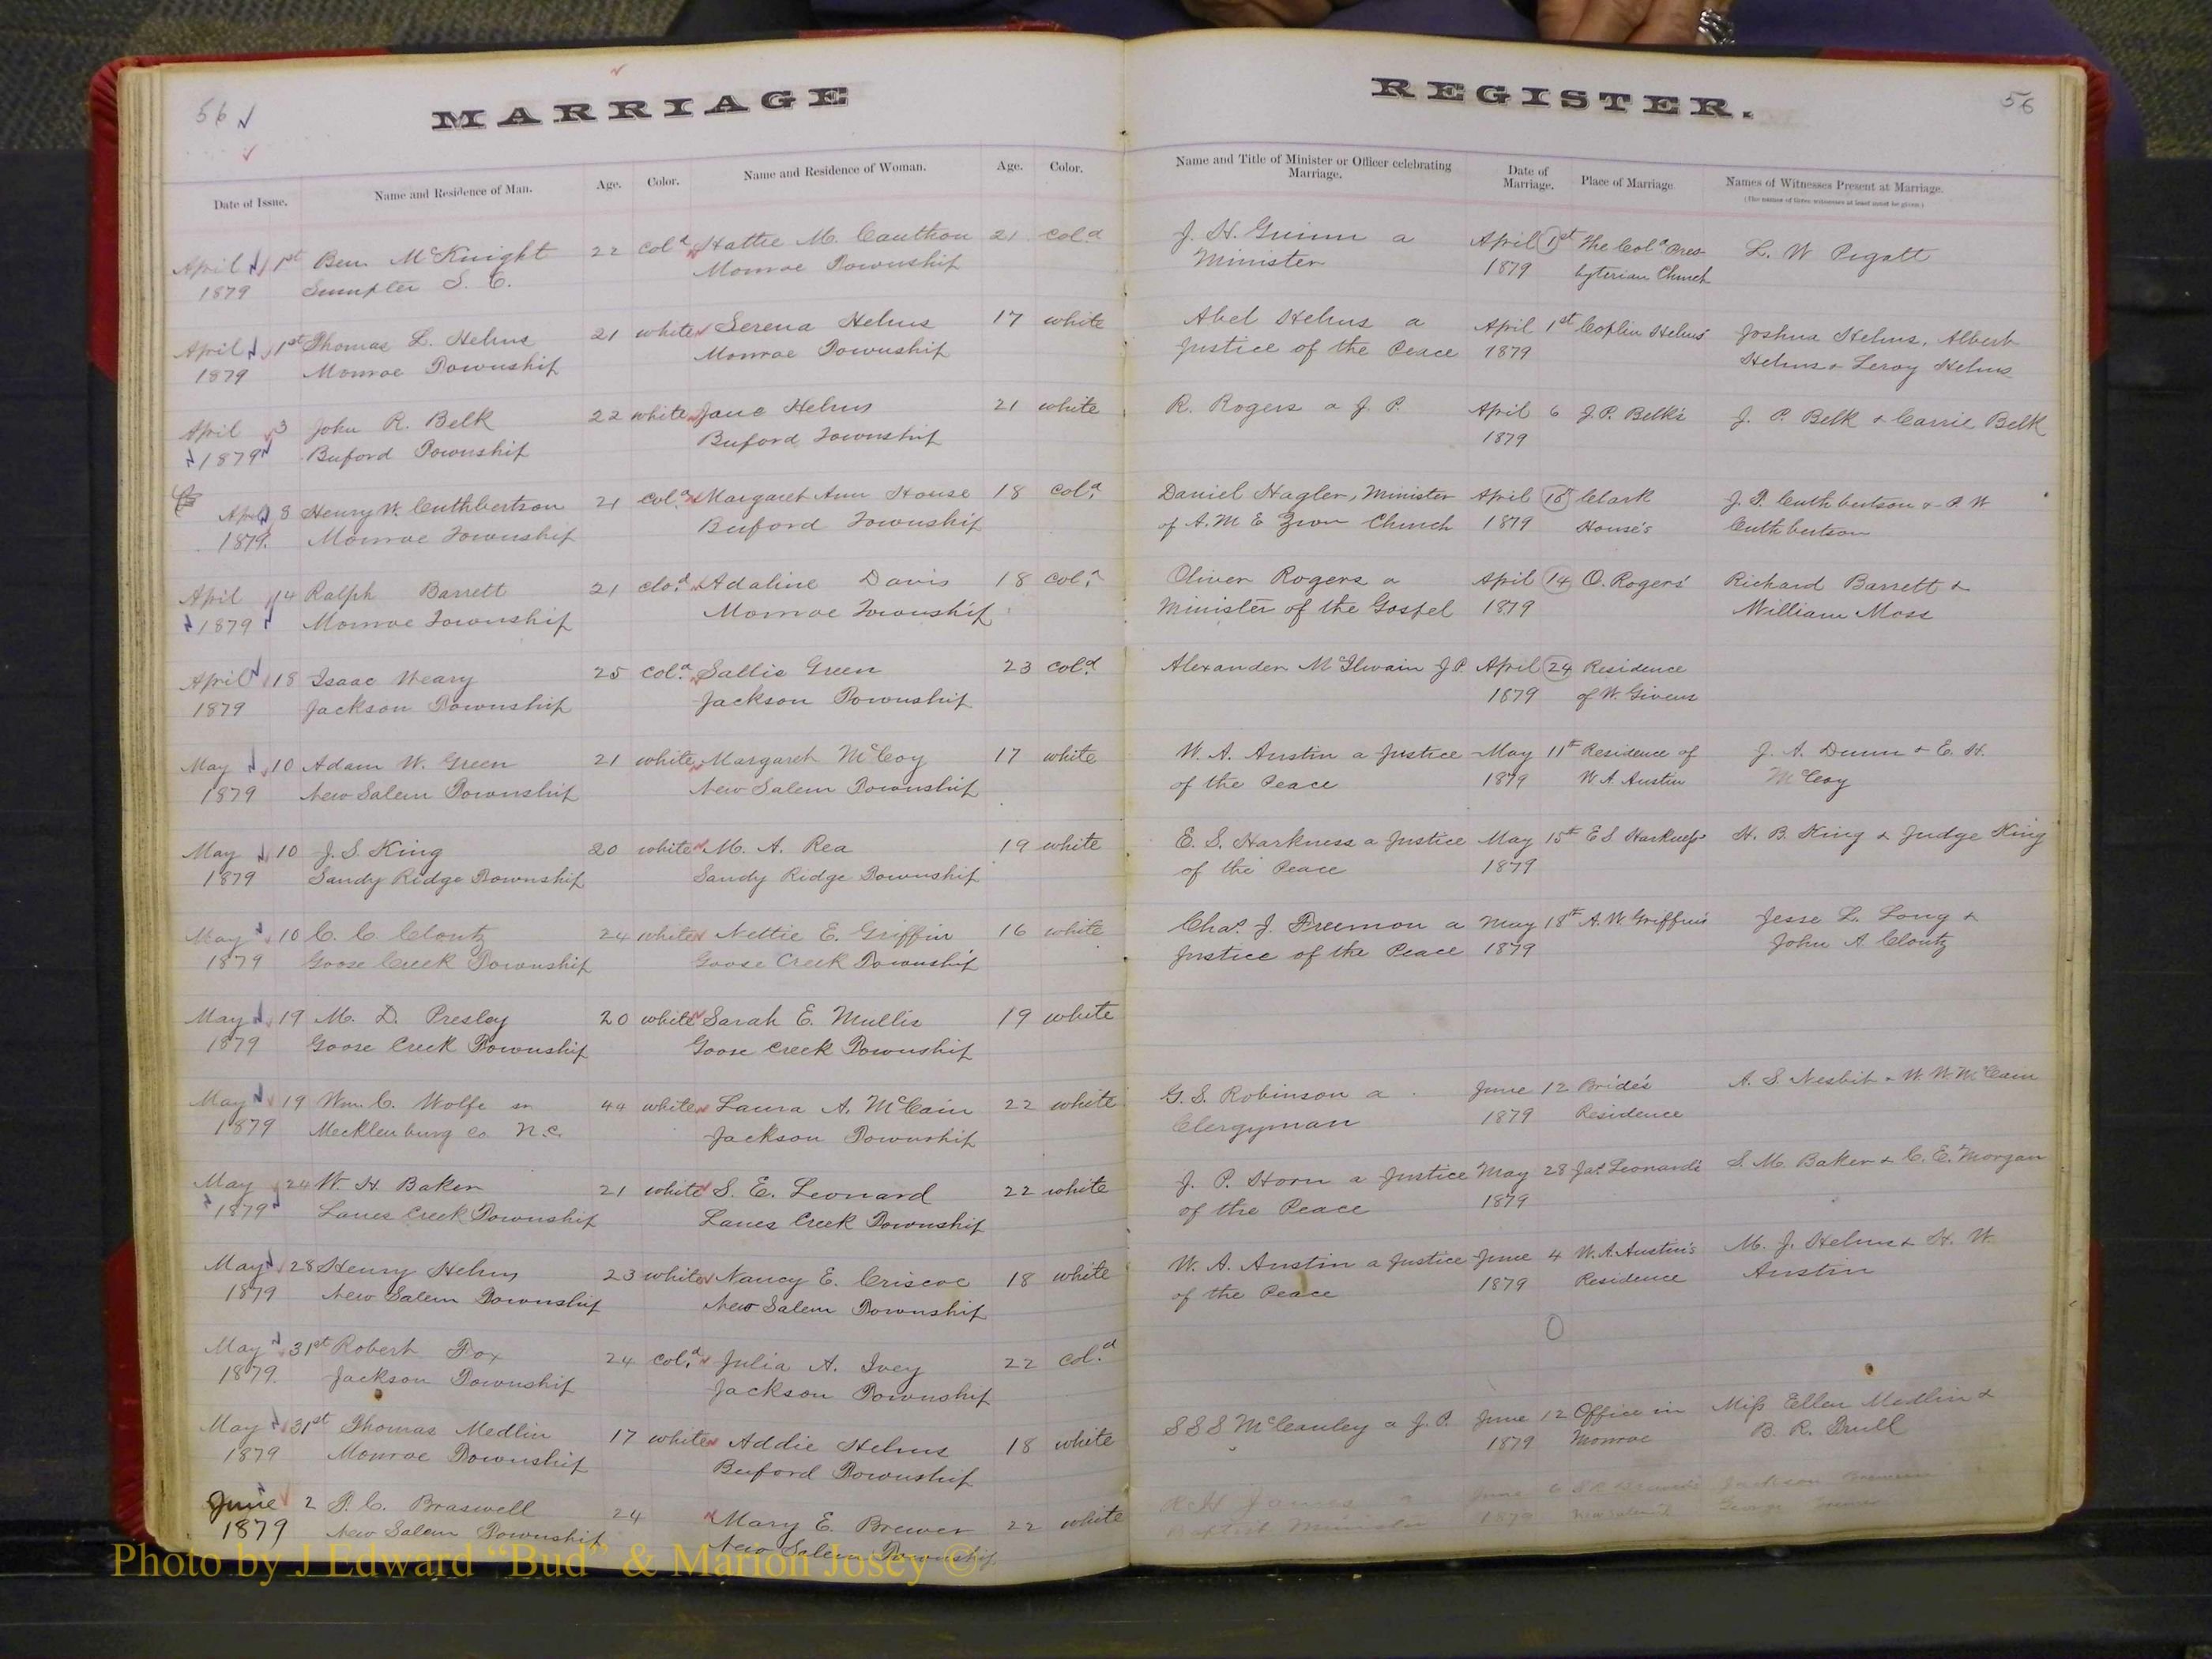 56
MARRIAGE
Date of Issue. Name and Residence of Man. Age. Color. Name and Residence of Woman. Age. Color.
April 1st Ben McKnight 22 cold Hattie M. Cauthon 21 cold
1879 Sumpter S. C. Monroe Township
April 1st Thomas L. Helms 21 white Serena Helms 17 white
1879 Monroe Township Monroe Township
April 3 John R. Belk 22 white Jane Helms 21 white
1879 Buford Township Buford Township
April 8 Henry W. Cuthbertson 21 cold Margaret Ann House 18 cold
1879. Monroe Township Buford Township
April 14 Ralph Barrett 21 clod Adaline Davis 18 cold
1879 Monroe Township Monroe Township
April 18 Isaac Neary 25 cold Sallie Green 23 cold
1879 Jackson Township Jackson Township
May 10 Adam W. Green 21 white Margaret McCoy 17 white
1879 New Salem Township New Salem Township
May 10 J. S. King 20 white M. A. Rea 19 white
1879 Sandy Ridge Township Sandy Ridge Township
May 10 C. C. Clontz 24 white Nettie E. Griffin 16 white
1879 Goose Creek Township Goose Creek Township
May 19 M. D. Presley 20 white Sarah E. Mullis 19 white
1879 Goose Creek Township Goose Creek Township
May 19 Wm. C. Wolfe 44 white Laura A. McCain 22 white
1879 Mecklenburg Co. N.C. Jackson Township
May 24 W. H. Baker 21 white S. E. Leonard 22 white
1879 Lanes Creek Township Lanes Creek Township
May 28 Henry Helms 23 white Nancy E. Criscoe 18 white
1879 New Salem Township New Salem Township
May 31st Robert Fox 24 cold Julia A. Ivey 22 cold
1879. Jackson Township Jackson Township
May 31st Thomas Medlin 17 white Addie Helms 18 white
1879 Monroe Township Buford Township
June 2 P. C. Braswell 24 Mary E. Brewer 22 white
1879 New Salem Township New Salem Township
REGISTER.
56
Name and Title of Minister or Officer celebrating Marriage. Date of Marriage. Place of Marriage. Names of Witnesses Present at Marriage.
(The names of three witnesses at least must be given.)
J. H. Guinn a April 1st The Cold Pres- L. W Pegatt
Minister 1879 byterian Church
Abel Helms a April 1st Coplin Helms' Joshua Helms, Albert
Justice of the Peace 1879 Helms & Leroy Helms
R. Rogers a J. P. April 6 J. P. Belk's J. P. Belk & Carrie Belk
1879
Daniel Hagler, Minister April Clark J. P. Cuthbertson & P. W
of A. M E Zion Church 1879 House's Cuthbertson
Oliver Rogers a April 14 O. Rogers' Richard Barrett &
Minister of the Gospel 1879 William Moss
Alexander McIlwain J.P. April 24 Residence
1879 of W. Givens
W. A. Austin a Justice May 11th Residence of J. A. Dunn & E. H.
of the Peace 1879 W A Austin McCoy
E. S. Harkness a Justice May 15th E S Harkness H. B. King & Judge King
of the Peace 1879
Chas. J. Freemon a May 18th A. W. Griffin's Jesse L. Long &
Justice of the Peace 1879 John A Clontz
G. S. Robinson a June 12 Bride's A. S. Nesbit & W. W. McCain
Clergyman 1879 Residence
J. P. Horn a Justice May 28 Jas Leonard's S. M. Baker & C. E. Morgan
of the Peace 1879
W. A. Austin a Justice June 4 W. A. Austin's M. J. Helms & H. W.
of the Peace 1879 Residence Austin
0
S S S McCauley a J. P. June 12 Office in Miss Ellen Medlin &
1879 Monroe B. R. Trull
James a June 6 Jackson
Baptist Minister 1879 George
Photo by J Edward “Bud” & Marion Josey ©